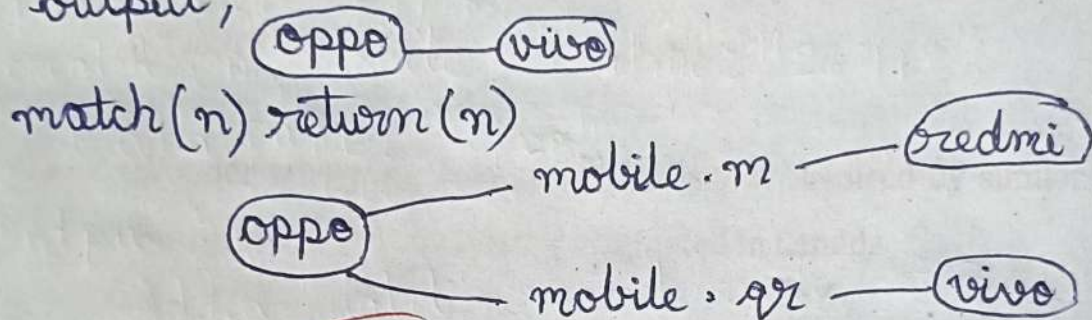 output,
oppo vivo
match(n) return(n)
mobile.m redmi
oppo
mobile.qr vivo